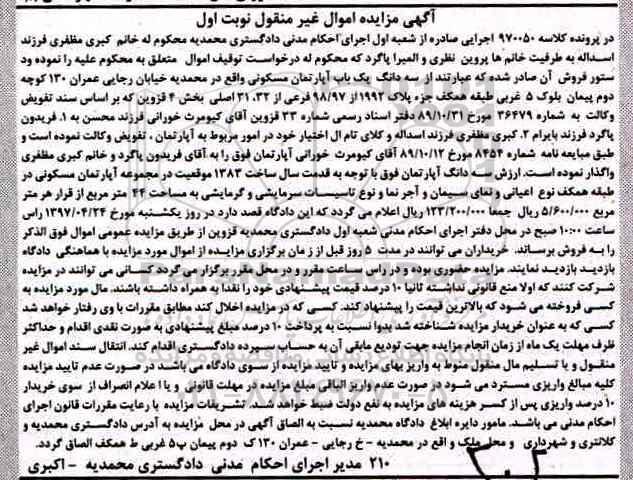 آگهی مزایده اموال غیر منقول نوبت اول
در پرونده کلاسه ۹۷۰۰۵۰ اجرایی صادره از شعبه اول اجرای احکام مدنی دادگستری محمدیه محکوم له خانم کبری مظفری فرزند
اسداله به طرفیت خانم ها پروین نظری و المیرا پاگرد که محکوم له درخواست توقیف اموال متعلق به محکوم علیه را نموده ود
ستور فروش آن صادر شده که عبارتند از سه دانگ یک باب آپارتمان مسکونی واقع در محمدیه خیابان رجایی عمران ۱۳۰ کوچه
دوم پیمان بلوک ۵ غربی طبقه همکف جزء پلاک ۱۹۹۲از ۹۸/۹۷ فرعی از ۳۲، ۳۱ اصلی بخش ۴ قزوین که بر اساس سند تفویض
وکالت به شماره ۳۶۴۷۹ مورخ ۸۹/۱۰/۳۱ دفتر اسناد رسمی شماره ۳۳ قزوین آقای کیومرث خورانی فرزند محسن به ۱. فریدون
پاگرد فرزند بایرام ۲. کبری مظفری فرزند اسداله و کلای تام ال اختیار خود در امور مربوط به آپارتمان ، تفویض وکالت نموده است و
طبق مبایعه نامه شماره ۸۴۵۴ مورخ ۸۹/۱۰/۱۲ آقای کیومرث خورانی آپارتمان فوق را به آقای فریدون پاگرد و خانم کبری مظفری
واگذار نموده است. ارزش سه دانگ آپارتمان فوق با توجه به قدمت سال ساخت ۱۳۸۳ موقعیت در مجموعه آپارتمان مسکونی در
طبقه همکف نوع اعیانی و نمای سیمان و آجر نما و نوع تاسیسات سرمایشی و گرمایشی به مساحت ۴۴ متر مربع از قرار هر متر
مربع ۵/۶۰۰/۰۰۰ ریال جمعا ۱۲۳/۲۰۰/۰۰۰ ریال اعلام می گردد که این دادگاه قصد دارد در روز یکشنبه مورخ ۱۳۹۷/۰۴/۲۴ راس
ساعت ۱۰:۰۰ صبح در محل دفتر اجرای احکام مدنی شعبه اول دادگستری محمدیه قزوین از طریق مزایده عمومی اموال فوق الذکر
را به فروش برساند. خریداران می توانند در مدت ۵ روز قبل از ز مان برگزاری مزایده از اموال مورد مزایده با هماهنگی دادگاه
بازدید بازدید نمایند. مزایده حضوری بوده و در راس ساعت مقرر و در محل مقرر برگزار می گردد کسانی می توانند در مزایده
شرکت کنند که اولا منع قانونی نداشته ثانیا ۱۰ درصد قیمت پیشنهادی خود را نقدا به همراه داشته باشند. مال مورد مزایده به
کسی فروخته می شود که بالاترین قیمت را پیشنهاد کند. کسی که در مزایده اخلال کند مطابق مقررات با وی رفتار خواهد شد
کسی که به عنوان خریدار مزایده شناخته شد بدوا نسبت به پرداخت ۱۰ درصد مبلغ پیشنهادی به صورت نقدی اقدام و حداکثر
ظرف مهلت یک ماه از زمان انجام مزایده جهت تودیع مابقی آن به حساب سپرده دادگستری اقدام کند. انتقال سند اموال غیر
منقول و یا تسلیم مال منقول منوط به واریز بهای مزایده و تایید مزایده از سوی دادگاه می باشد در صورت عدم تایید مزایده
کلیه مبالغ واریزی مسترد می شود در صورت عدم واریز الباقی مبلغ مزایده در مهلت قانونی و یا اعلام انصراف از سوی خریدار
۱۰ درصد واریزی پس از کسر هزینه های مزایده به نفع دولت ضبط خواهد شد. تشریفات مزایده با رعایت مقررات قانون اجرای
احکام مدنی می باشد. مامور دایره ابلاغ دادگاه محمدیه نسبت به الصاق آگهی در محل مزایده به آدرس دادگستری محمدیه و
کلانتری و شهرداری و محل ملک واقع در محمدیه - خ رجایی - عمران ۱۳۰ ک دوم پیمان پ۵ غربی ط همکف الصاق گردد.
۲۱۰ مدیر اجرای احکام مدنی دادگستری محمدیه - اکبری